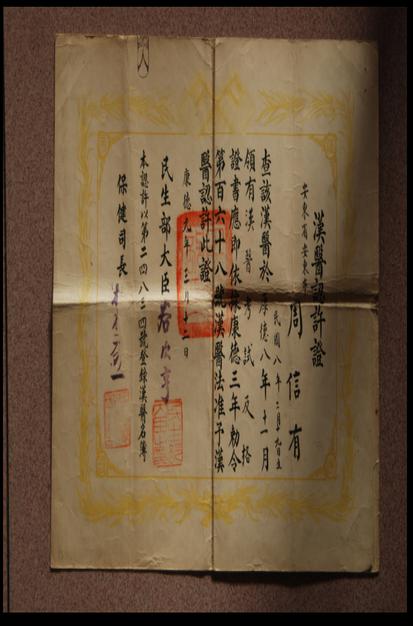 漢醫認許證
安東省安東市
周信有
民國八年二月十九日生
查該漢醫於康德八年十一月
領有漢醫考試及格
證書應即依據康德三年勅令
第百六十八號漢醫法准予漢
醫認許此證
康德九年三月十二日
民生部大臣谷次亨
本認許以第二四八三四號登錄漢醫名簿
保健司長